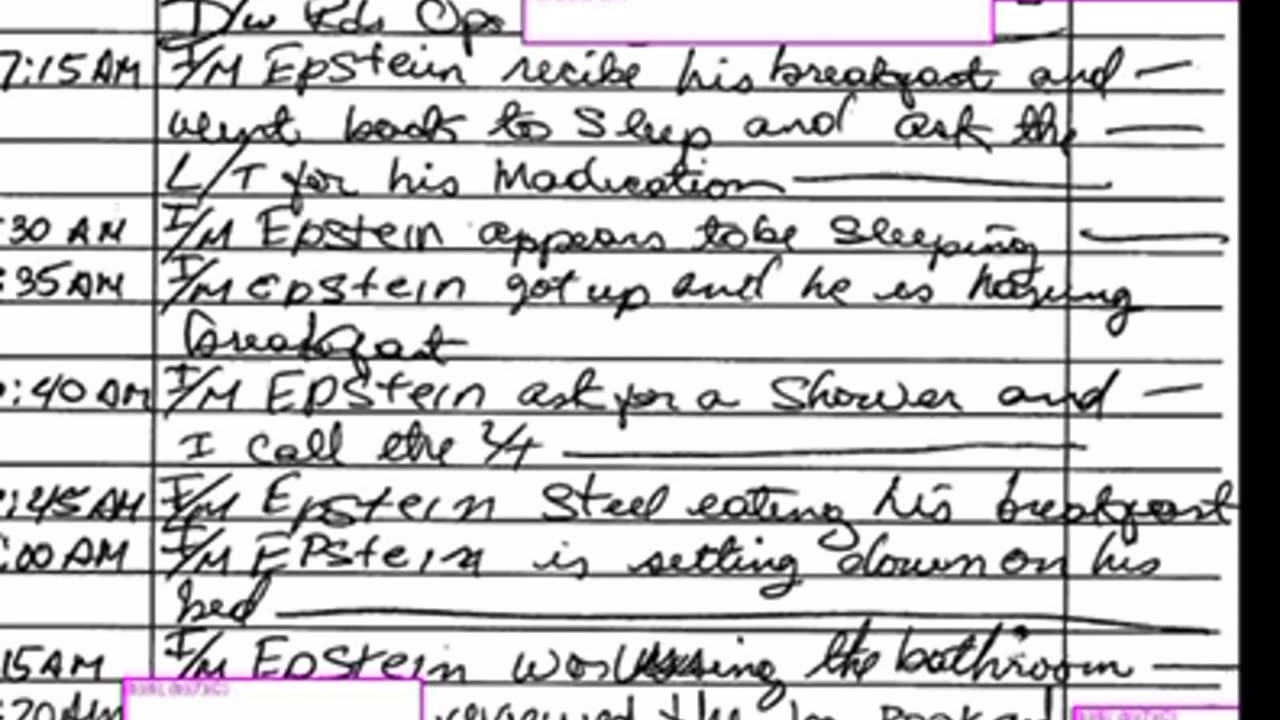 D/w Rds Ops
7:15 AM I/M Epstein recibe his breakfast and
went back to Sleep and ask the
L/T for his Madication
:30 AM I/M Epstein appears to be Sleeping
:35 AM I/M Epstein got up and he is having
breakfast
:40 AM I/M EPStein ask for a Shower and
I call the L/T
:45 AM I/M Epstein Steel eating his breakfast
:00 AM I/M EPStein is setting down on his
bed
15 AM I/M EPStein was using the bathroom
:20 AM the